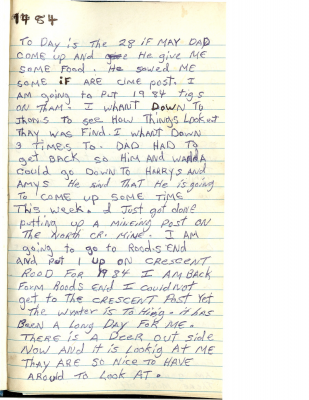 1984
To Day is The 28 iF MAY DAD
COME up AND He give ME
SOME Food. He sowed ME
SOME iF ARE CIME post. I
AM going To PUT 1984 tigs
ON THAM. I WHANT DOWN TO
To see How Things Look out
THAY WAS FIND. I WHANT DOWN
3 TIMES TO. DAD HAD To
get BACK SO HIM AND WANDA
COULD go DOWN To HARRYS AND
AMYS He siad THAT He IS going
To COME up SOME TIME
THIS WEEK. I JUST got done
putting up A MINEING POST ON
THE NORTH OR. MINE. I AM
going to go to ROODS END
AND PUT 1 UP ON CRESCENT
ROOD FOR 1984 I AM BACK
FORM ROODS END I COULD NOT
get to THE CRESCENT Post Yet
THE WATER IS To Hing. it HAS
BEEN A LONG DAY FOR ME.
THERE IS A DEER OUT side
NOW AND it is Lookig AT ME
THAY ARE SO NICE To HAVE
AROUND To LOOK AT.